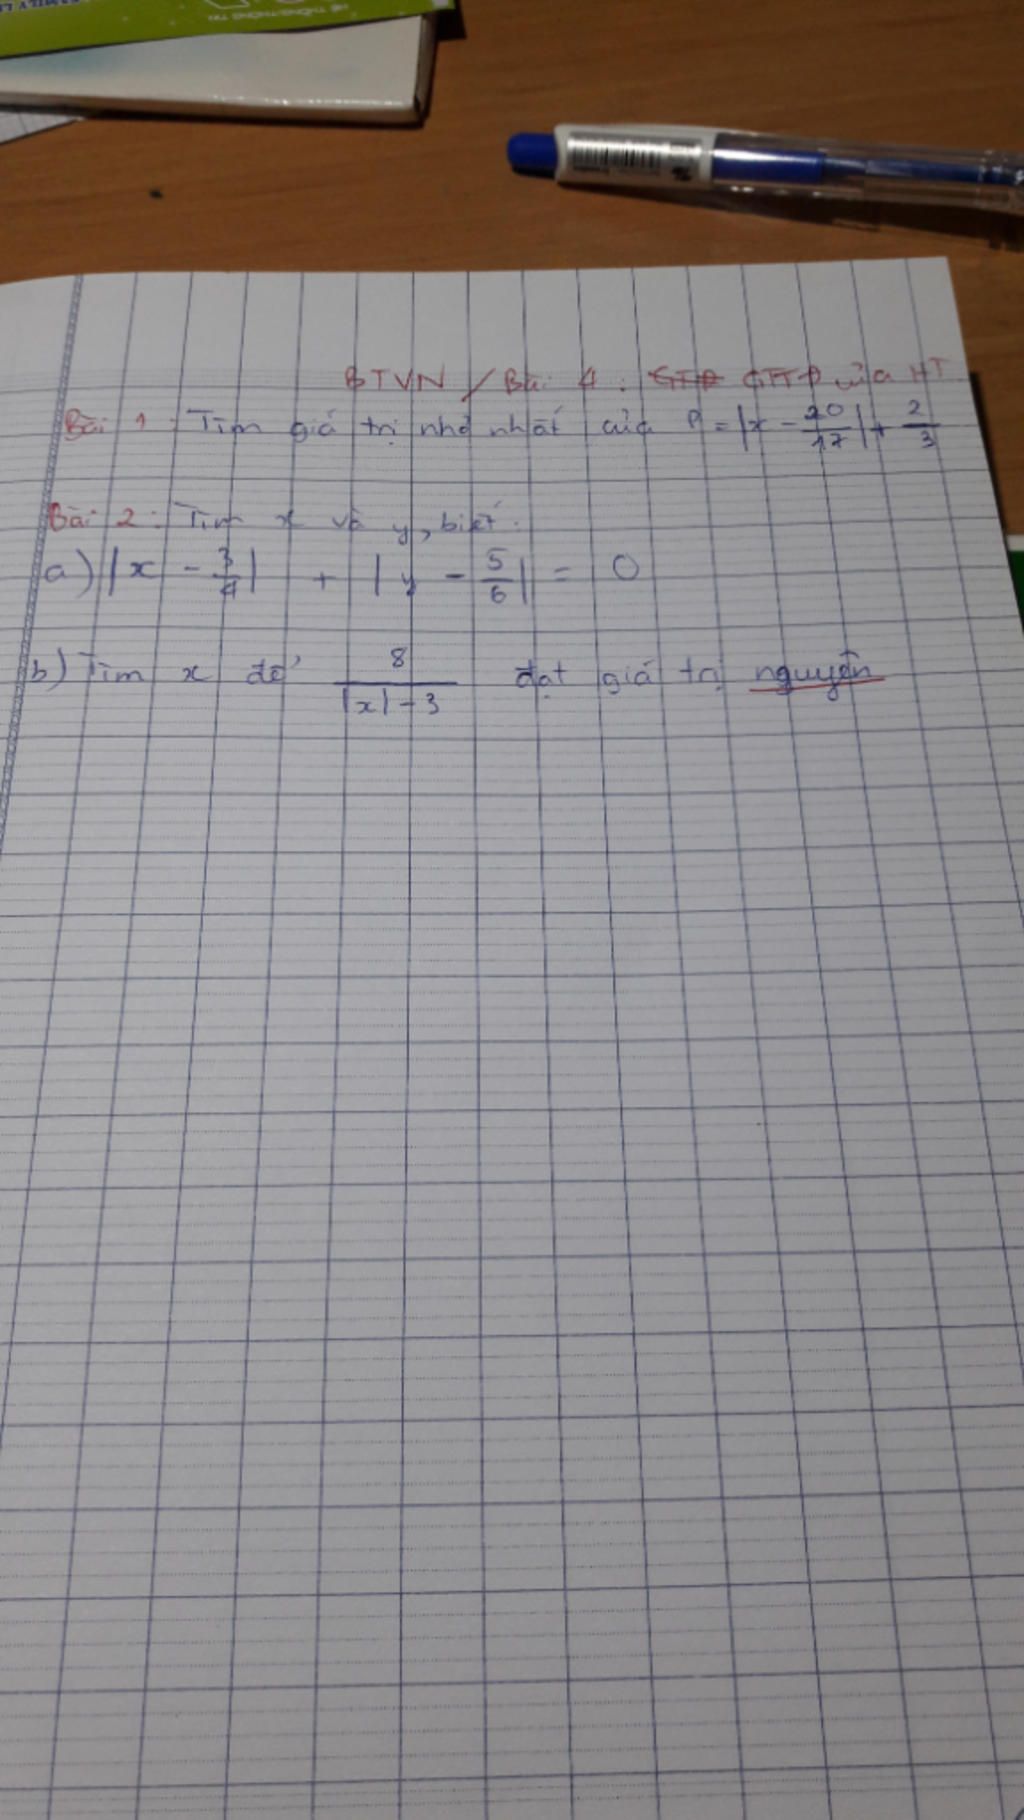 BTVN / Bài 4 : GTTĐ của HT
Bài 1 : Tìm giá trị nhỏ nhất của P = |x - 20/17| + 2/3
Bài 2 : Tìm x và y, biết :
a) |x - 3/4| + |y - 5/6| = 0
b) Tìm x để 8/(|x| - 3) đạt giá trị nguyên